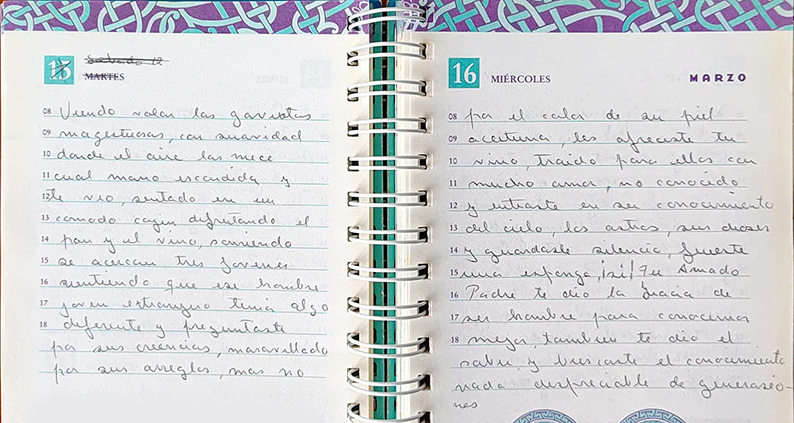 15 Sabado 12
MARTES
08 Viendo volar las gaviotas
09 magestuosas, con suavidad
10 donde el aire las mece
11 cual mano escondida y
12 te veo, sentado en un
13 comodo cojin difrutando el
14 pan y el vino, sonriendo
15 se acercan tres jovenes
16 sintiendo que ese hombre
17 joven estrangero tenia algo
18 diferente y preguntaste
por sus creencias, maravillado
por sus arreglos, mas no
16 MIÉRCOLES MARZO
08 por el color de su piel
09 aceituna, les ofreciste tu
10 vino, traido para ellos con
11 mucho amor, no conocido
12 y entraste en su conocimiento
13 del cielo, los astros, sus dioses
14 y guardaste silencio, fuerte
15 una esponga, ¡si! Tu Amado
16 Padre te dio la gracia de
17 ser hombre para conocernos
18 mejor tambien te dio el
saber, y buscaste el conocimiento
nada despreciable de generasio-
nes